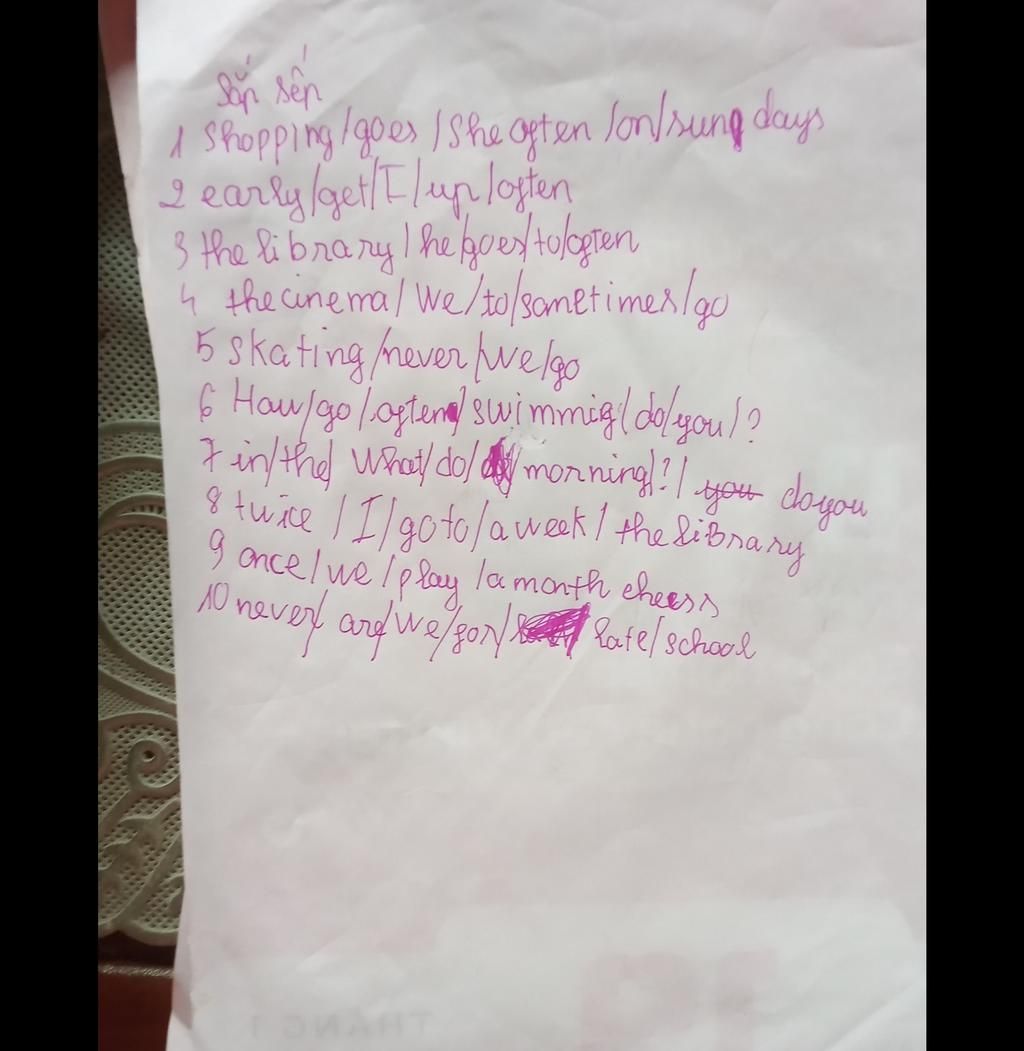 Sắp sến
1 Shopping/goes/She often/on/sundays
2 early/get/I/up/often
3 the library/he/goes/to/often
4 the cinema/We/to/sometimes/go
5 Skating/never/We/go
6 How/go/often/swimmig/do/you/?
7 in/the/What/do/morning/?/you do you
8 twice/I/go to/a week/the library
9 once/we/play/a month chess
10 never/are/we/for/late/school
THÁNG 1